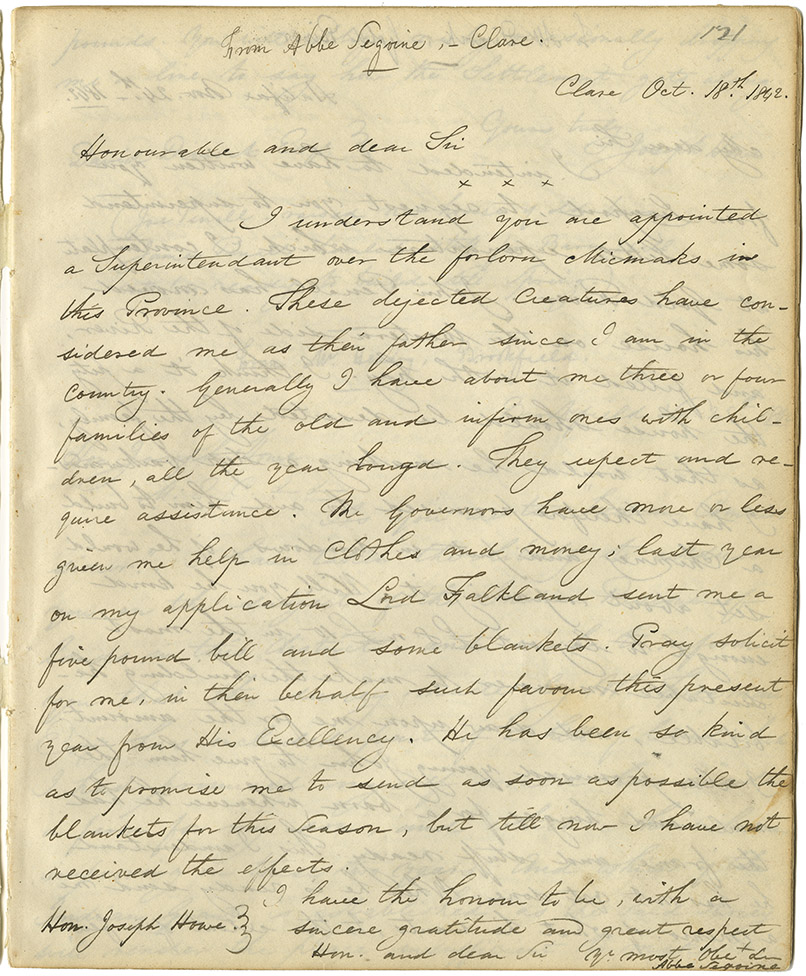 121
From Abbe Segoine, – Clare.
Clare Oct. 18th. 1842.
Honourable and dear Sir
x x x
I understand you are appointed
a Superintendant over the forlorn Micmaks in
this Province. These dejected Creatures have con-
sidered me as their father since I am in the
Country. Generally I have about me three or four
families of the old and infirm ones with chil-
dren, all the year longd. They expect and re-
quire assistance. The Governors have more or less
given me help in Clothes and money; last year
on my application Lord Falkland sent me a
five pound bill and some blankets. Pray solicit
for me, in their behalf such favour this present
year from His Excellency. He has been so kind
as to promise me to send as soon as possible the
blankets for this Season, but till now I have not
received the effects.
I have the honour to be, with a
Hon. Joseph Howe. } sincere gratitude and great respect
Hon. and dear Sir yr most Obet
Abbe Segoine